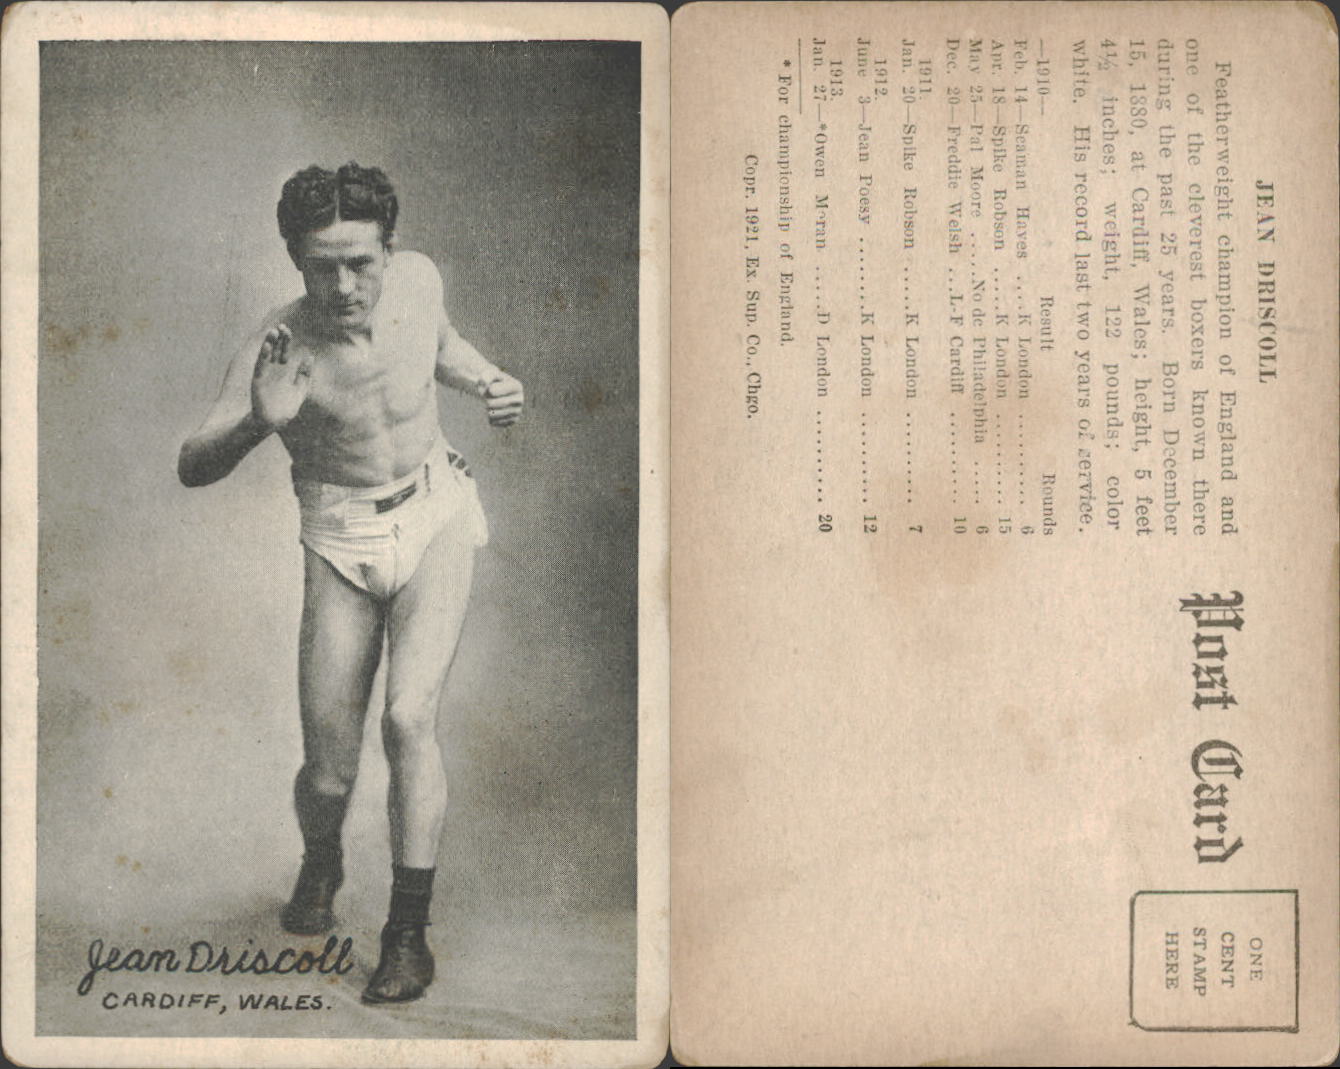 Jean Driscoll
CARDIFF, WALES.
JEAN DRISCOLL
Featherweight champion of England and
one of the cleverest boxers known there
during the past 25 years. Born December
15, 1880, at Cardiff, Wales; height, 5 feet
4½ inches; weight, 122 pounds; color
white. His record last two years of service.
—1910— Result Rounds
Feb. 14—Seaman Hayes ....K London .......... 6
Apr. 18—Spike Robson .....K London ..........15
May 25—Pal Moore .....No dc Philadelphia ..... 6
Dec. 20—Freddie Welsh ...L-F Cardiff .......... 10
1911.
Jan. 20—Spike Robson .....K London .......... 7
1912.
June 3—Jean Poesy ........K London .......... 12
1913.
Jan. 27—*Owen Moran .....D London .......... 20
* For championship of England.
Copr. 1921, Ex. Sup. Co., Chgo.
Post Card
ONE
CENT
STAMP
HERE